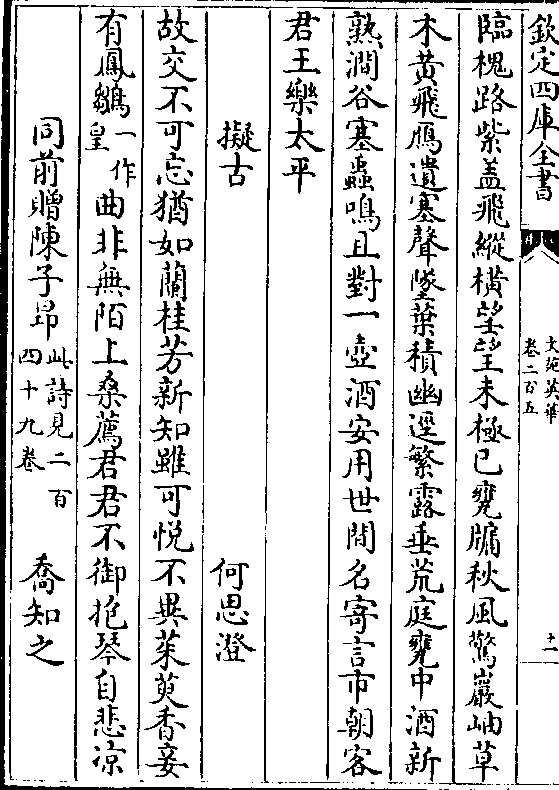 欽定四庫全書
文苑英華
卷二百五
十一
臨槐路紫蓋飛縱橫望望未極已甕牖秋風驚巖岫草
木黄飛鴈遺塞聲墜葉積幽逕繁露垂荒庭甕中酒新
熟澗谷寒蟲鳴且對一壺酒安用世間名寄言市朝客
君王樂太平
擬古 何思澄
故交不可忘猶如蘭桂芳新知雖可悅不異茱萸香妾
有鳳雛一作皇曲非無陌上桑薦君君不御抱琴自悲凉
同前贈陳子昻此詩見二百四十九卷 喬知之